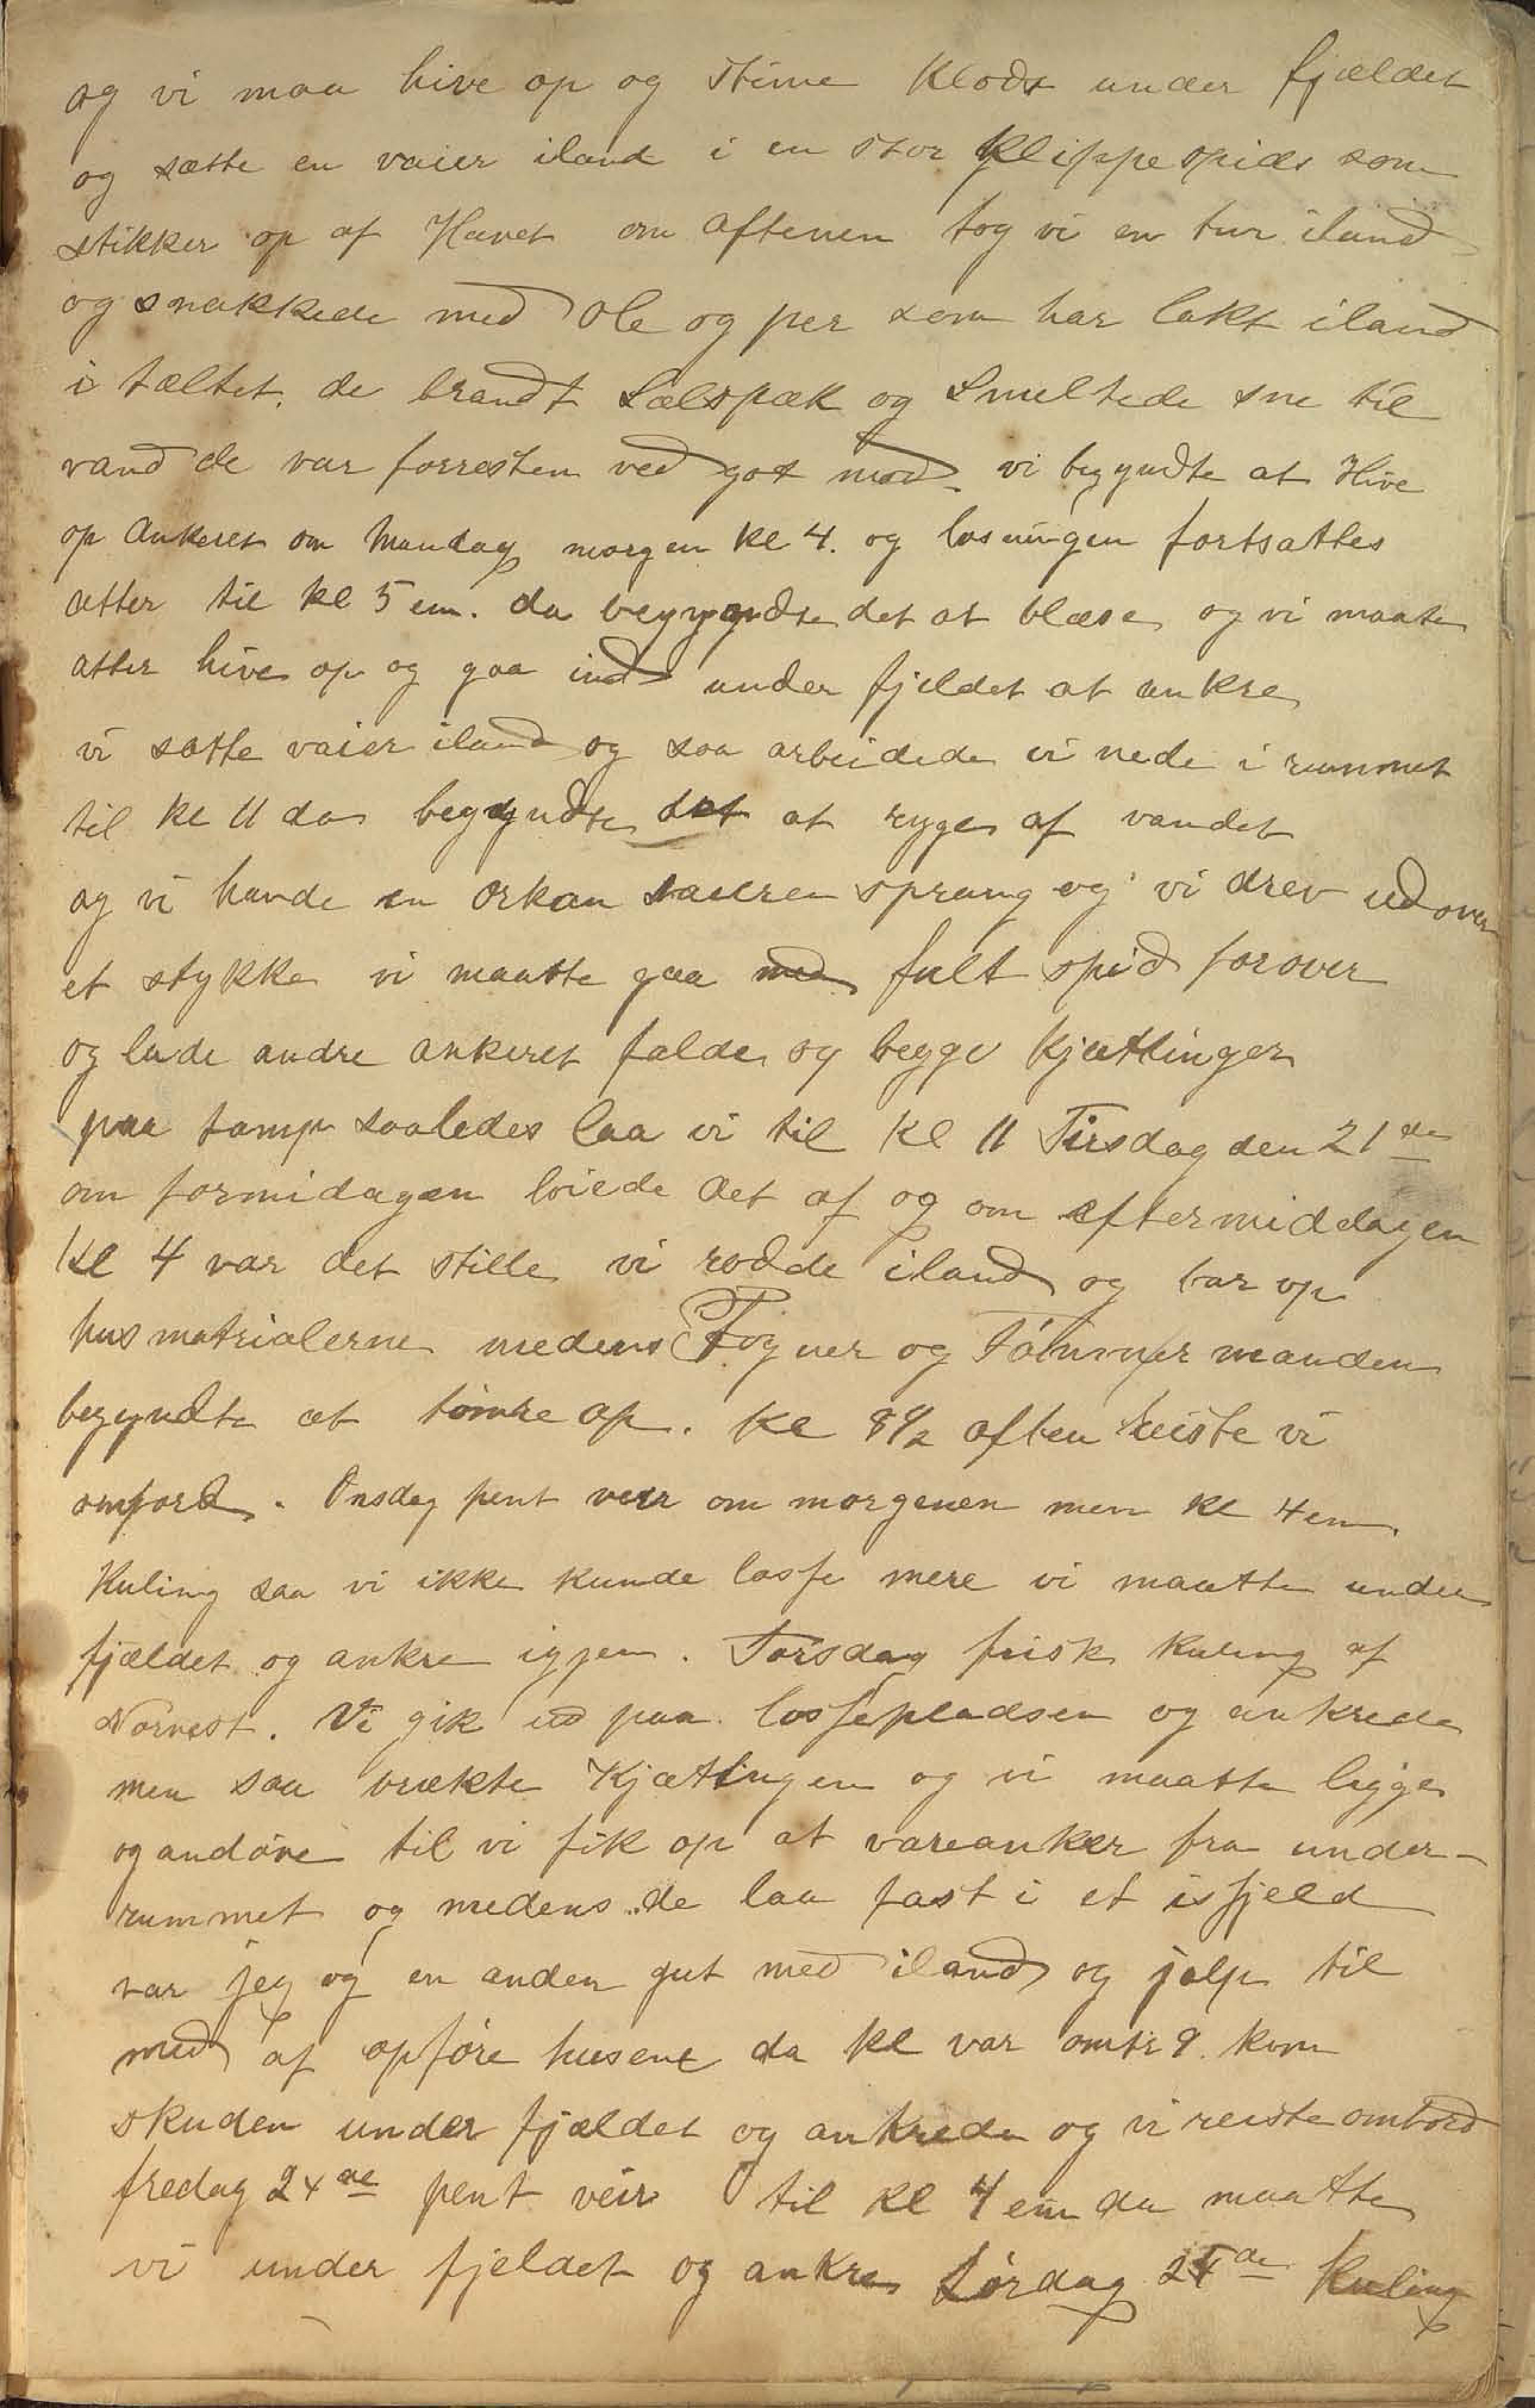 og vi maa hive op og stime klods under fjældet
og sætte en vaier iland i en stor Klippespids som
stikker op af Havet om aftenen tog vi en tur iland
og snakkede med Ole og per som har lakt iland
i tæltet. de brandt Sælspæk og Smeltede sne til
vand de var forresten ved got mod. vi begyndte at Hive
op Ankeret om Mandag morgen kl 4. og losningen fortsattes
atter til kl 5 em. da begyndte det at blæse og vi maate
atter hive op og gaa ind under fjeldet at ankre
vi satte vaier iland og saa arbeidede vi nede i rummet
til kl 11 da begyndte det at ryge af vandet
og vi havde en Orkan vaieren sprang og vi drev udover
et stykke vi maatte gaa med fult spid forover
og lade andre ankeret falde og begge Kjættinger
paa tamp saaledes laa vi til kl 11 Tirsdag den 21de
om formidagen løiede det af og om eftermiddagen
Kl 4 var det stille vi rodde iland og bar op
husmatrialerne medens Fogner og Tømmermanden
begyndte at tømre op. Kl 8½ aften reiste vi
ombord. Onsdag pent veir om morgenen men kl 4 em.
Kuling saa vi ikke kunde losse mere vi maatte under
fjældet og ankre igjen. Torsdag frisk Kuling af
Norvest. Vi gik ud paa lossepladsen og ankrede
men saa brækte Kjættingen og vi maatte ligge
og andøve til vi fik op at vareanker fra under-
rummet og medens de laa fast i et isfjeld
var jeg og en anden gut med iland og jalp til
med af opføre husene da kl var omtr 9. kom
skuden under fjældet og ankrede og vi reiste ombord
fredag 24de pent veir til kl 4 em da maatte
vi under fjeldet og ankre Lørdag 25de Kuling